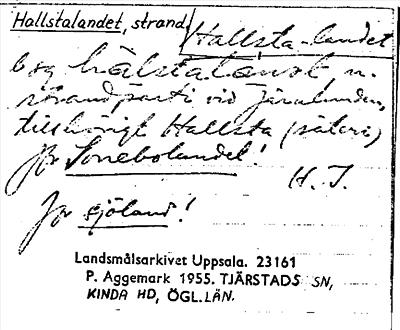 Hallstalandet, strand
Hallsta-landet
hälstalanst, n.
strandparti vid Järnlunden,
tillhörigt Hallsta (säteri)
Jfr Sonebolandet!
H. J.
Jfr sjöland!
Landsmålsarkivet Uppsala. 23161
P. Aggemark 1955. TJÄRSTADS SN,
KINDA HD, ÖGL. LÄN.